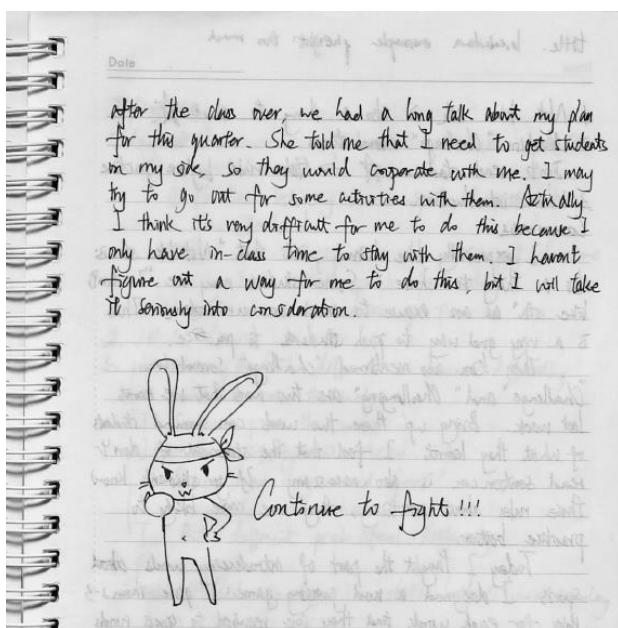 Date
after the class over, we had a long talk about my plan
for this quarter. She told me that I need to get students
in my side, so they would cooperate with me. I may
try to go out for some activities with them. Actually
I think it's very difficult for me to do this because I
only have in-class time to stay with them. I haven't
figure out a way for me to do this, but I will take
it seriously into consideration.
Continue to fight!!!